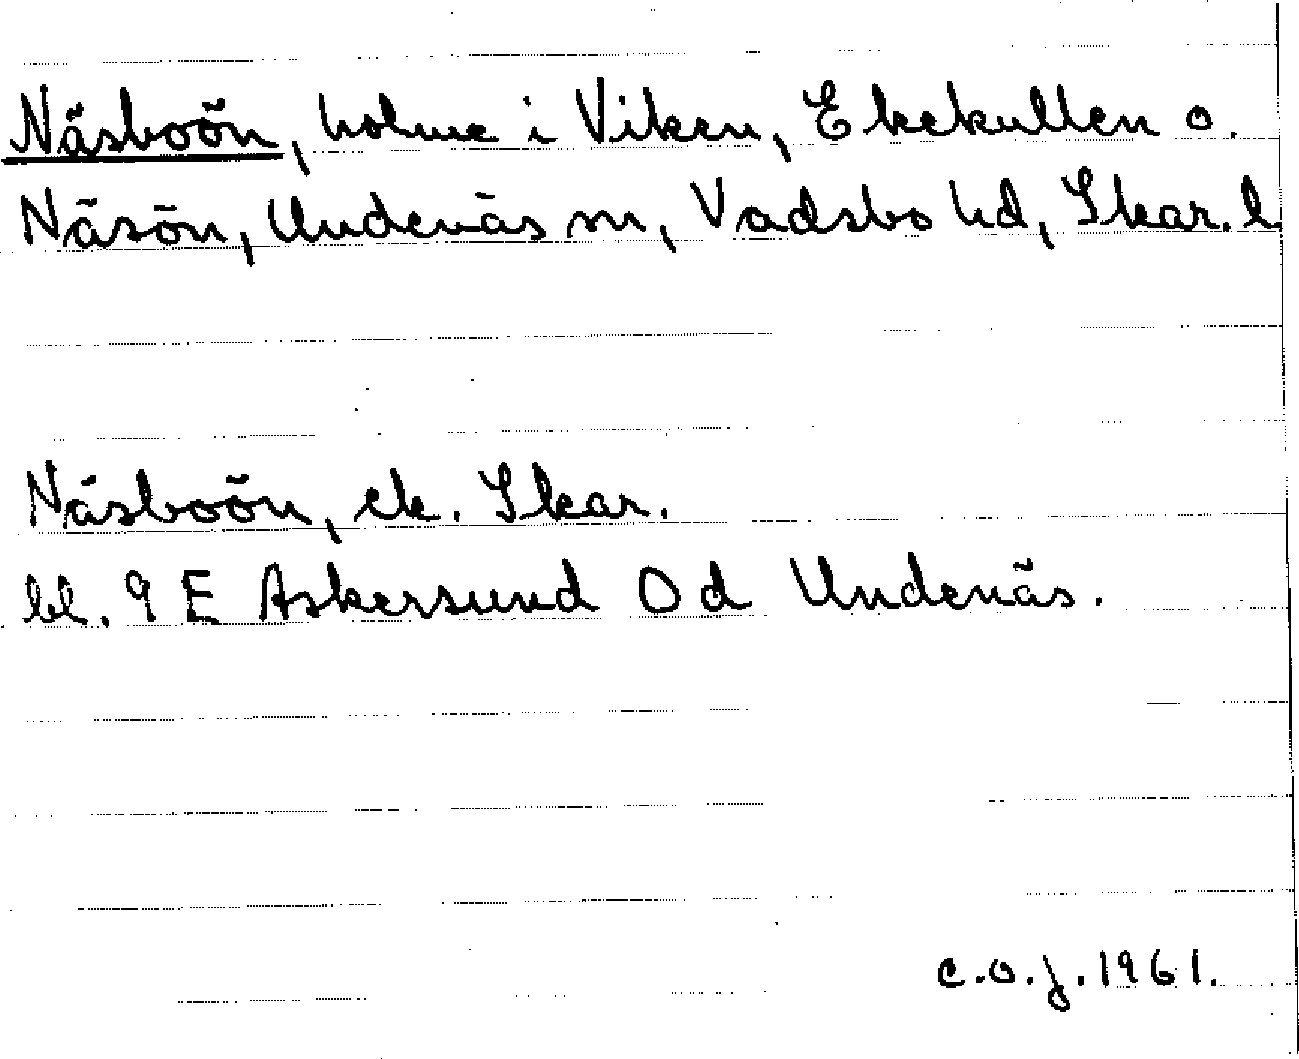 Näsboön, holme i Viken, Ekekullen o.
Näsön, Undenäs sn, Vadsbo hd, Skar. l
Näsboön, ek. Skar.
bl. 9 E Askersund 0 d Undenäs.
c.o.j. 1961.